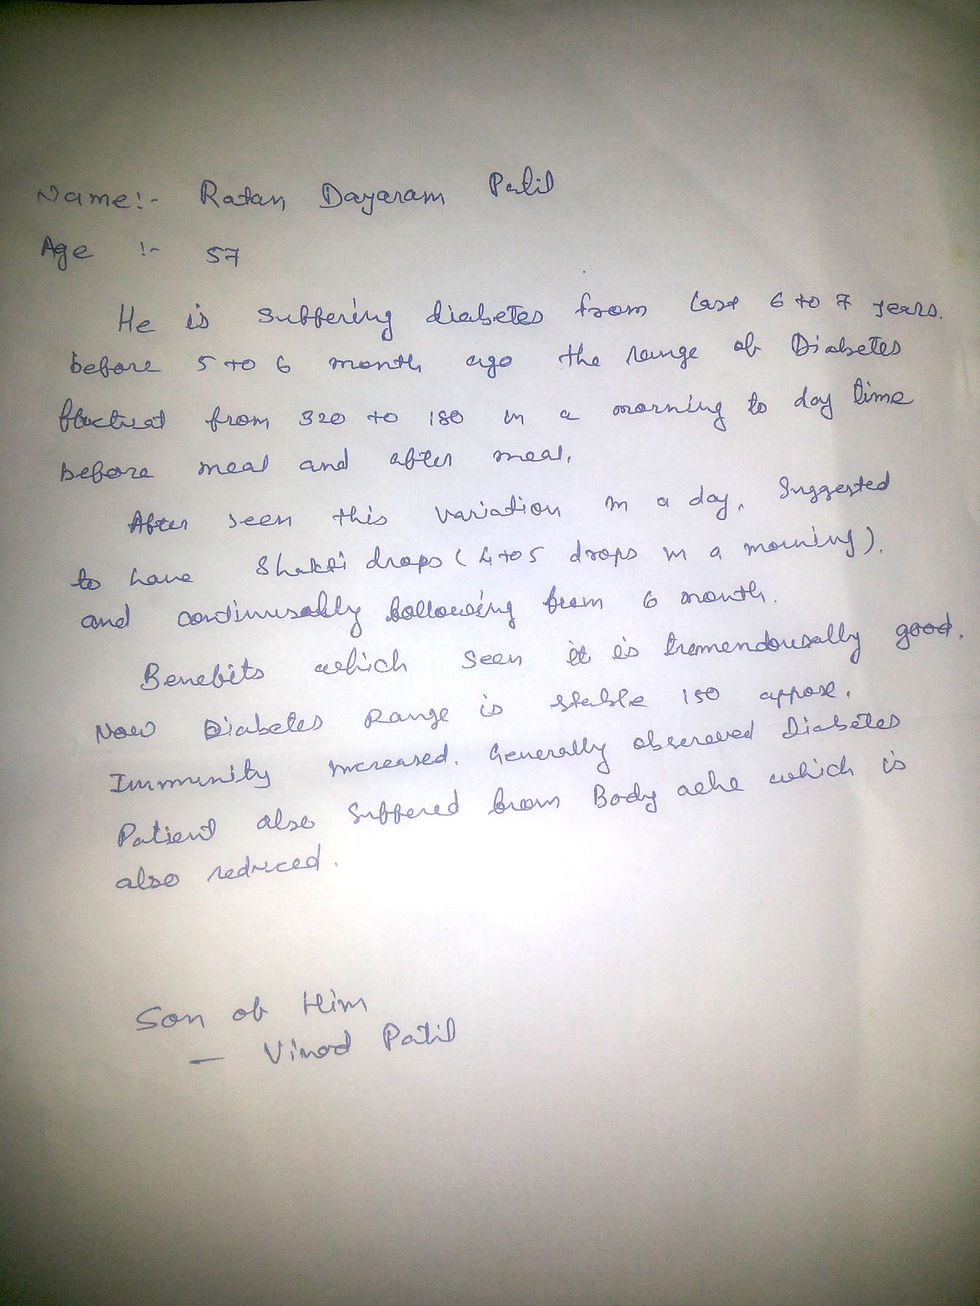 Name:- Ratan Dayaram Patil
Age :- 57
He is suffering diabetes from last 6 to 7 years.
before 5 to 6 month ago the range of Diabetes
fluctuat from 320 to 180 in a morning to day time
before meal and after meal.
After seen this variation in a day. Suggested
to have Shakti drops (4 to 5 drops in a morning).
and continusably following from 6 month.
Benefits which seen it is tremendousally good.
Now Diabetes Range is stable 150 appox.
Immunity increased. Generally observed Diabetes
Patient also suffered from Body ache which is
also reduced.
Son of Him
- Vinod Patil